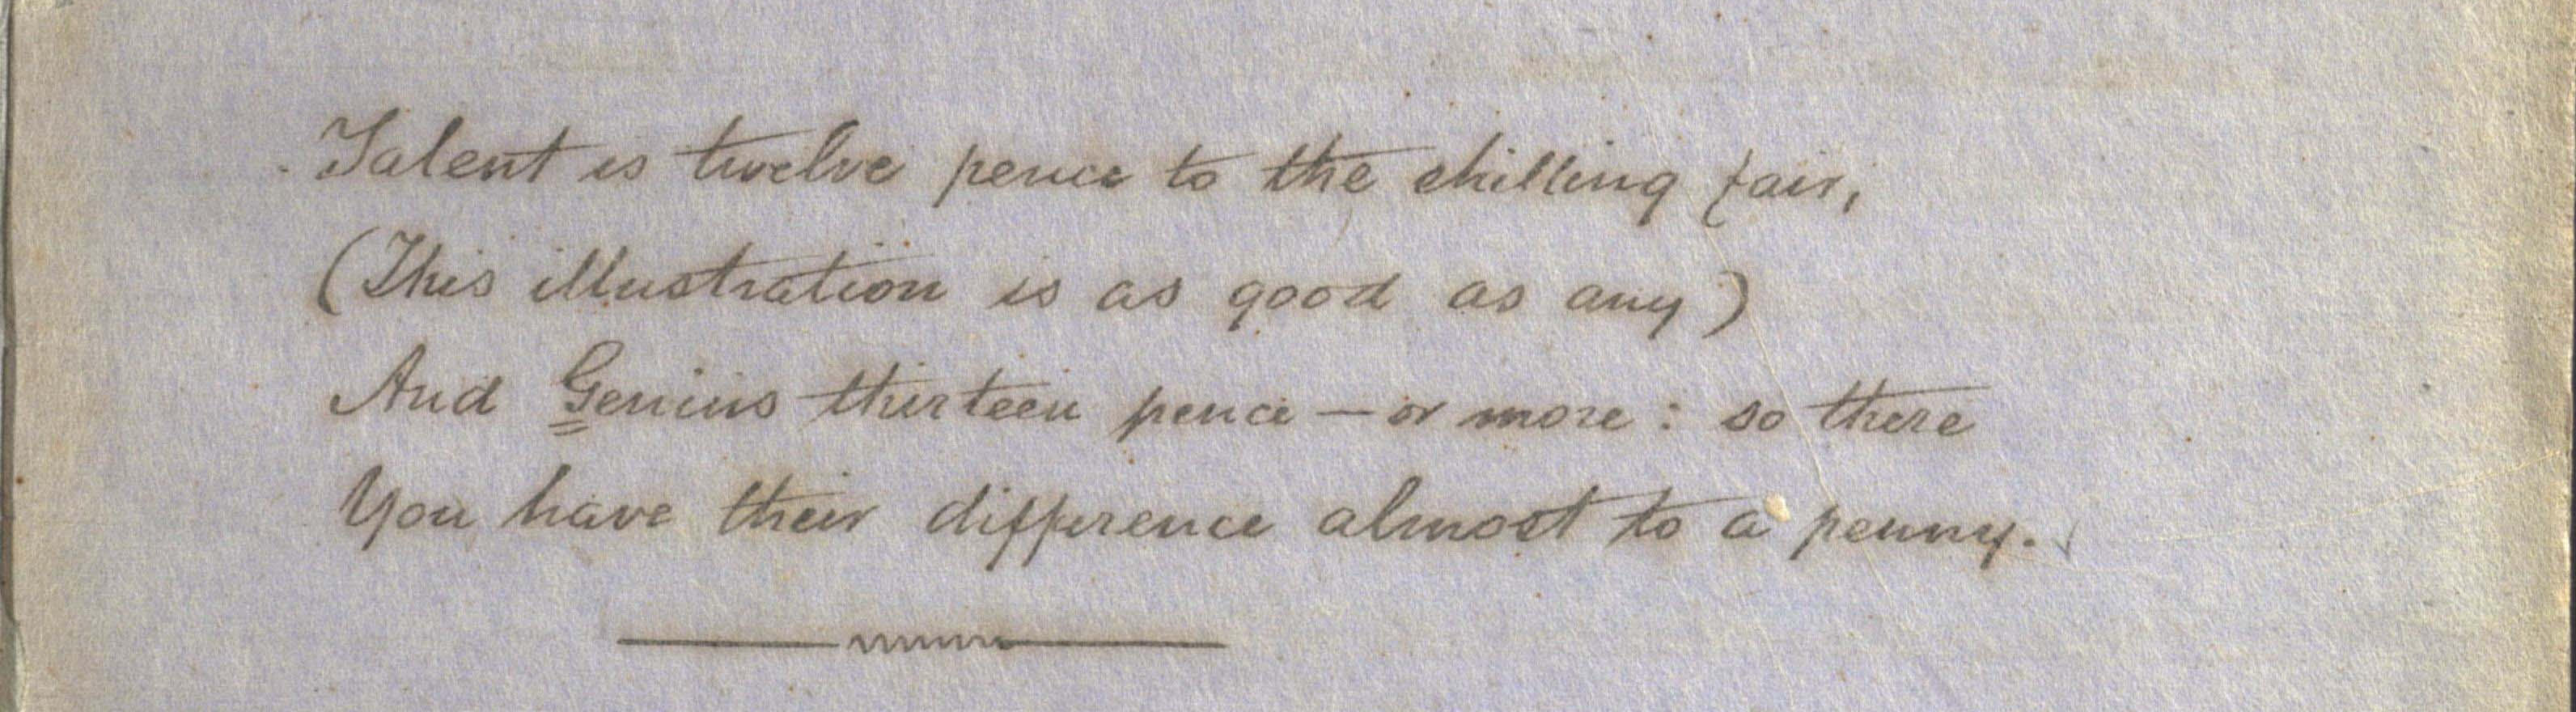 Talent is twelve pence to the shilling fair,
(This illustration is as good as any)
And Genius thirteen pence — or more : so there
You have their difference almost to a penny.